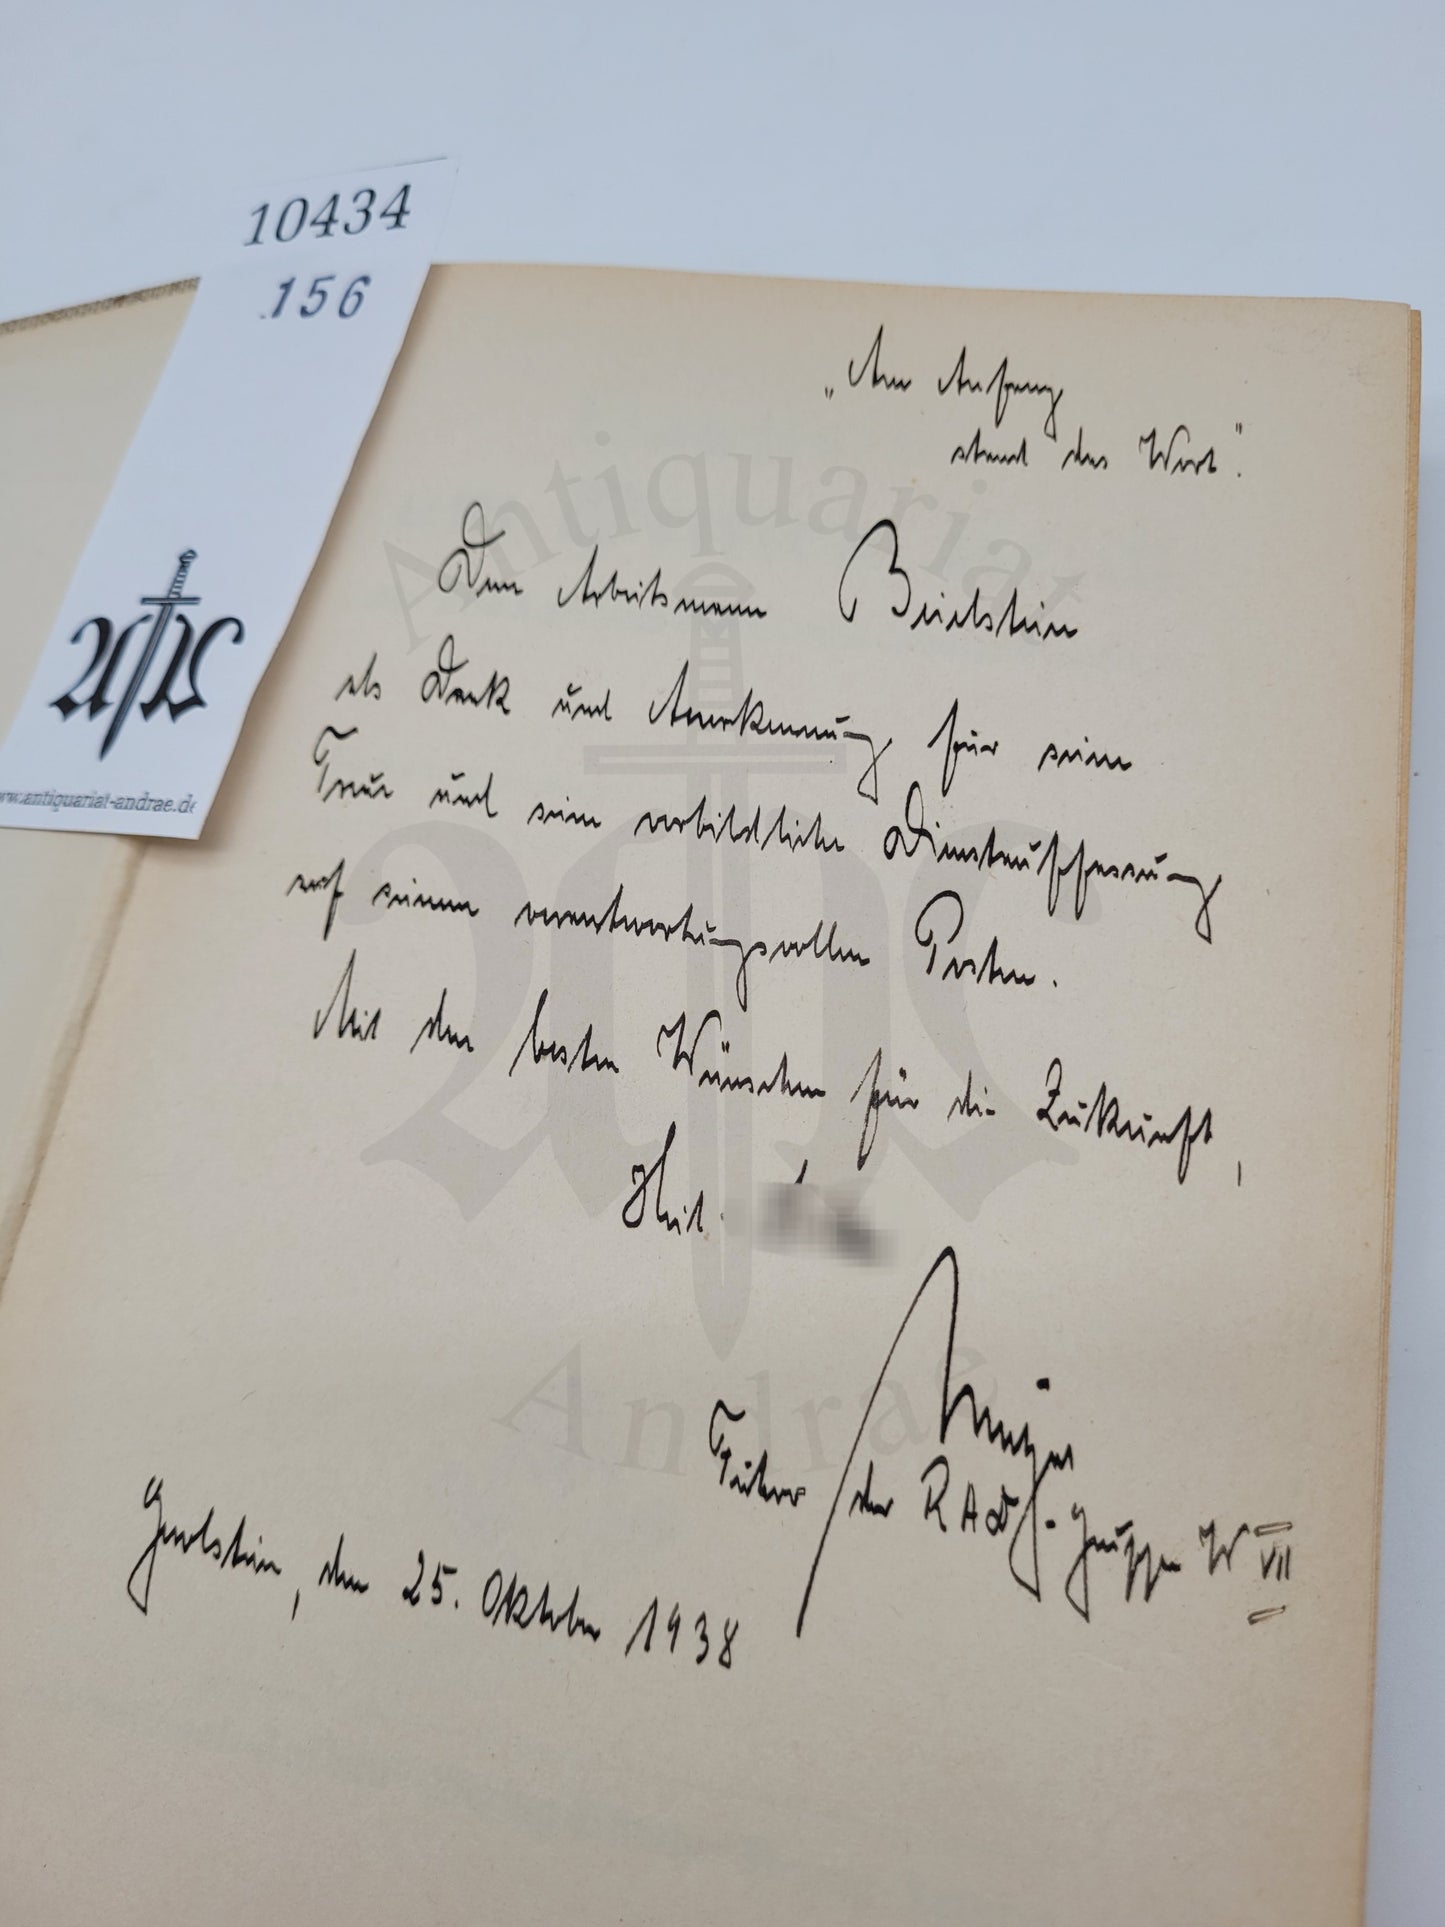 10434
156
www.antiquariat-andrae.de
Antiquariat
Andrae
„Am Anfang
stand das Wort".
Dem Arbeitsmann Beielstein
als Dank und Anerkennung für seine
Treue und seine vorbildliche Dienstauffassung
auf seinem verantwortungsvollen Posten.
Mit den besten Wünschen für die Zukunft,
Heil
Führer der RAD-Gruppe W VII
Gerolstein, den 25. Oktober 1938